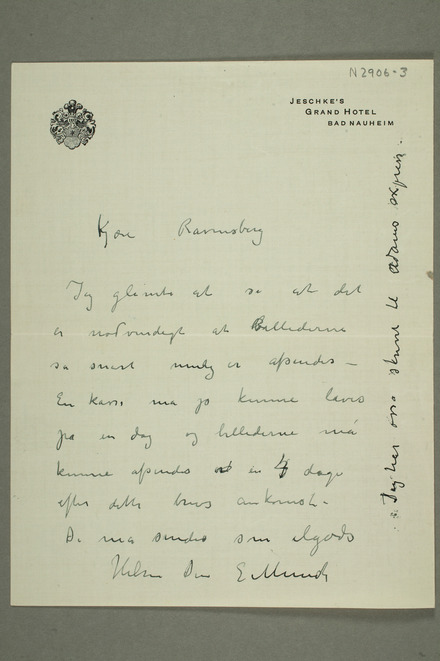 N2906-3
JESCHKE'S
GRAND HOTEL
BAD NAUHEIM
Kjære Ravensberg
Jeg glemte at se at det
er nødvendigt at Billederne
så snart mulig er afsendes –
En kasse ma jo kunne laves
på en dag og billederne må
kunne afsendes en 4 dage
efter dette brevs ankomst –
De ma sendes som ilgods
Hilsen Din E Munch
Jeg har også skrevet til Adams express.